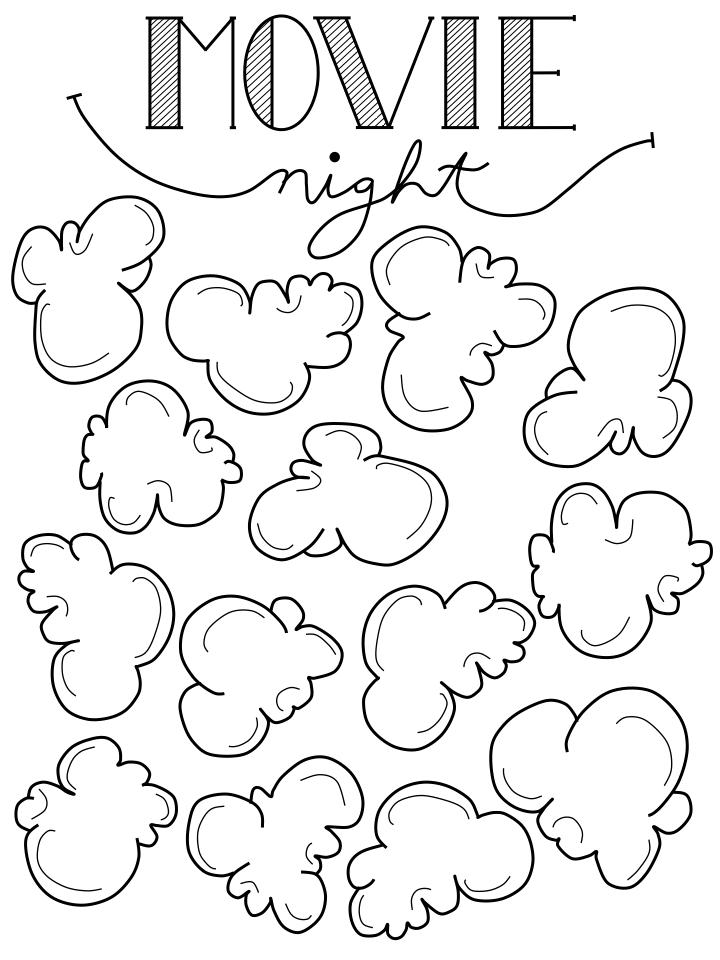 MOVIE
night